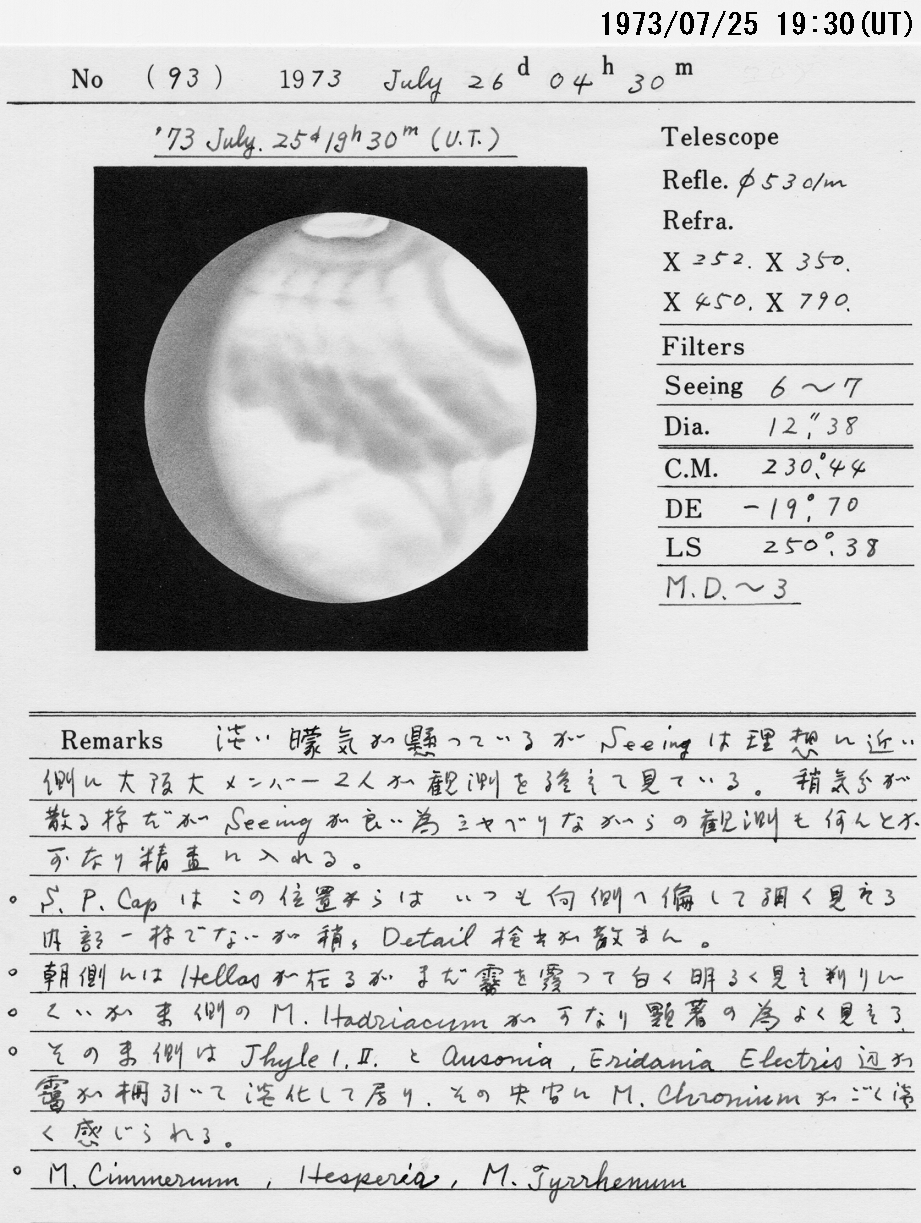 1973/07/25 19:30(UT)
No (93) 1973 July 26 d 04 h 30 m
'73 July. 25d 19h 30m (U.T.)
Telescope
Refle. φ530/m
Refra.
X 252. X 350.
X 450. X 790.
Filters
Seeing 6～7
Dia. 12."38
C.M. 230.°44
DE -19.°70
LS 250°.38
M.D.～3
Remarks 淡い朦気が懸っているが Seeing は理想に近い
側に大阪大メンバー2人が観測を終えて見ている。稍気分が
散る様だが Seeing が良い為シャベリながらの観測も何んとか
可なり精査に入れる。
○ S. P. Cap はこの位置からはいつも向側へ偏して細く見える
内部一様でないが稍々 Detail 検出が敵ません。
○ 朝側には Hellas が在るがまだ霧を覆って白く明るく見え判りに
○ くいが東側の M. Hadriacum が可なり顕著の為よく見える
○ その東側は Thyle I, II. と Ausonia, Eridania Electris 辺が
霧が棚引いて淡化して居り. その中央に M. Chronium がごく淡
く感じられる。
○ M. Cimmerium, Hesperia, M. Tyrrhenum